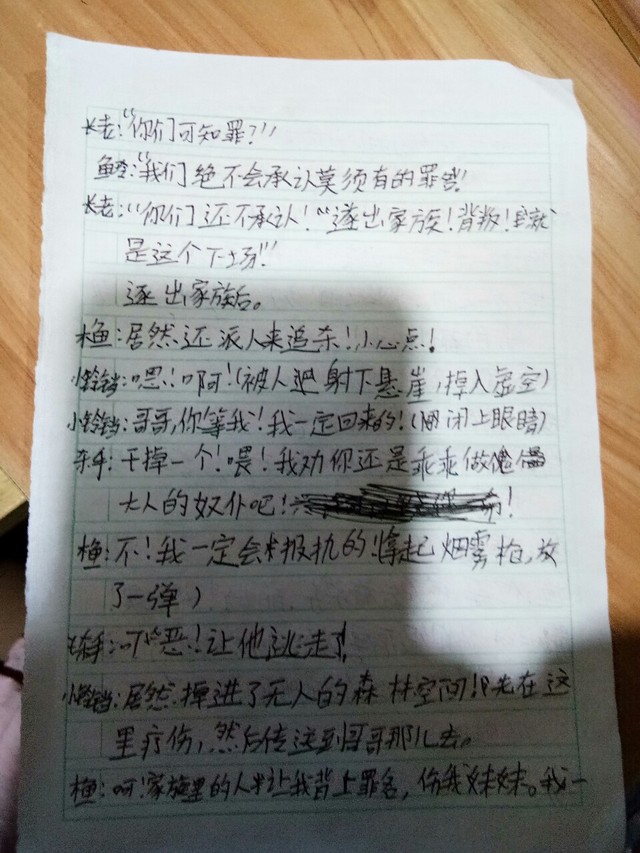 长老:“你们可知罪?!”
鱼:“我们绝不会承认莫须有的罪名!
长老:“你们还不承认!“逐出家族!背叛!就
是这个下场!”
逐出家族后。
木鱼:居然还派人来追杀!小心点!
小铃铛:嗯!啊!(被人射下悬崖,掉入虚空)
小铃铛:哥哥,你等我!我一定回来的!(闭上眼睛)
杀手:干掉一个!喂!我劝你还是乖乖做傀儡
大人的奴仆吧!!
木鱼:不!我一定会报仇的!(拿起烟雾枪,放
了一弹)
杀手:可恶!让他逃走了!
小铃铛:居然掉进了无人的森林空间!先在这
里疗伤,然后传送到哥哥那儿去。
木鱼:呵!家族里的人让我背上罪名,伤我妹妹。我一